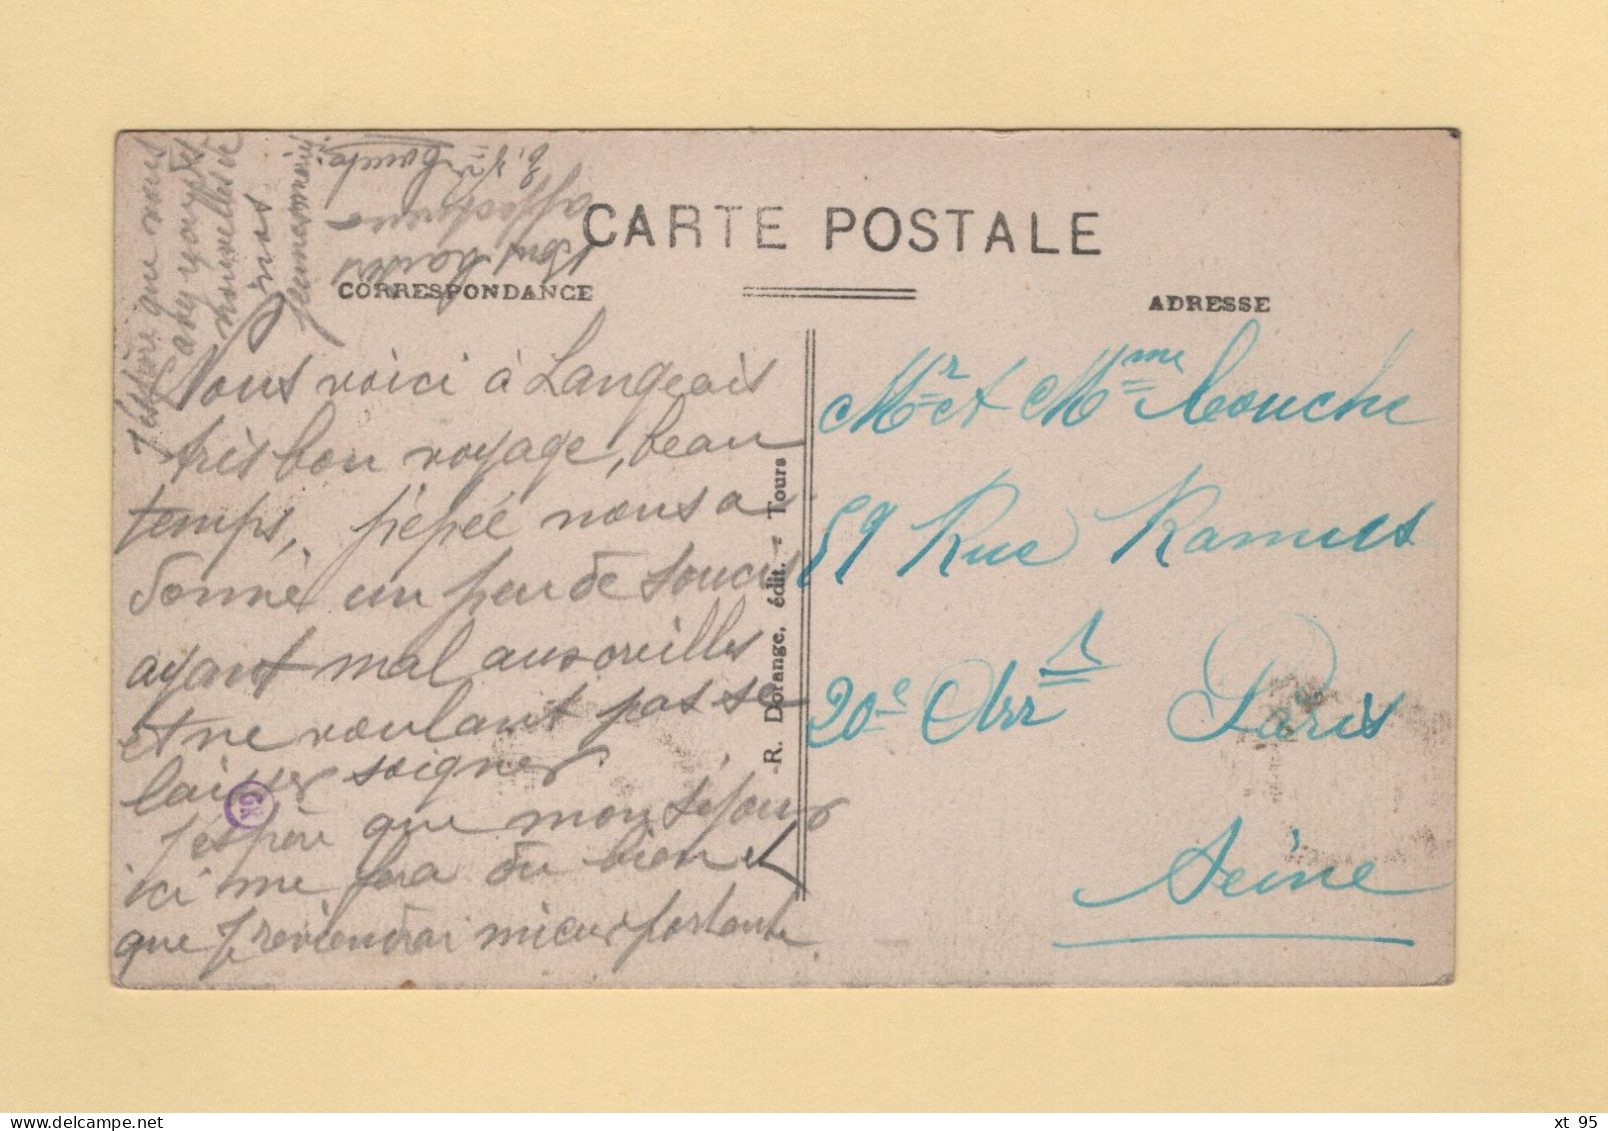 CARTE POSTALE
CORRESPONDANCE
ADRESSE
Nous voici à Langeais
très bon voyage, beau
temps, pépée nous a
donné un peu de soucis
ayant mal aux oreilles
et ne voulant pas se
laisser soigner.
J'espère que mon séjour
ici me fera du bien et
que je reviendrai mieux portante
J'espère que nous
nouvelles de
nos
bons baisers
affectueux
R. Dorange, édit. - Tours
GR
Mr et Mme Couche
59 Rue Ramus
20e Arrt Paris
Seine
xt 95